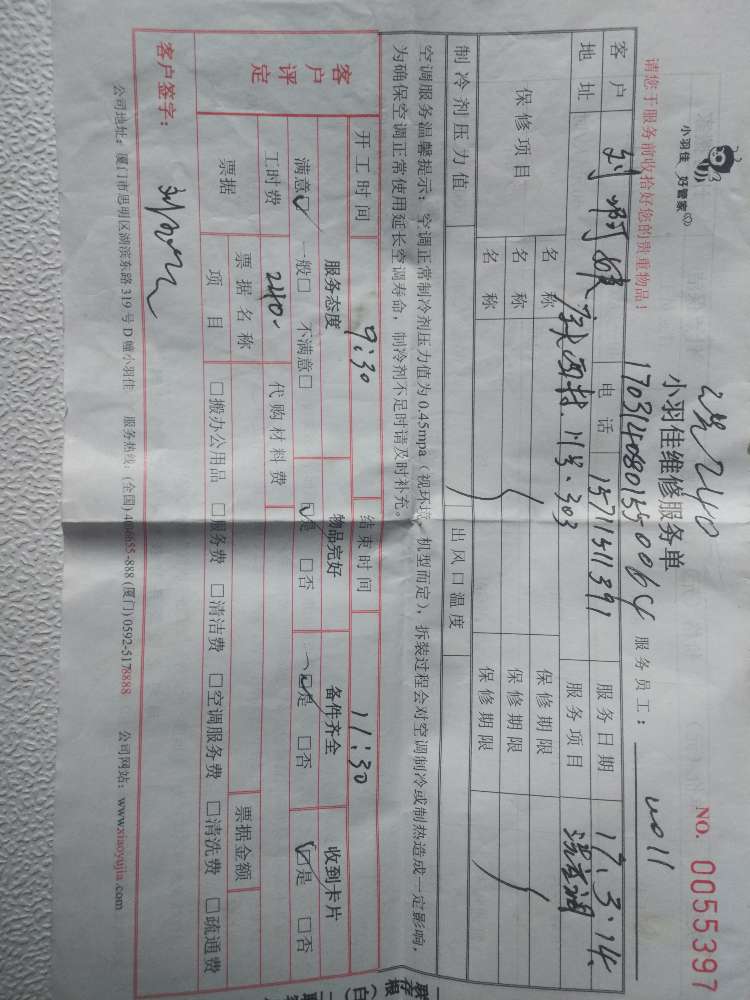 小羽佳 好管家
小羽佳维修服务单
NO. 0055397
请您于服务前收拾好您的贵重物品！
服务员工：
客户 电话 15711511391 服务日期 17.3.14.
地址 服务项目
保修项目 名称 保修期限
名称 保修期限
名称 保修期限
制冷剂压力值 出风口温度
空调服务温馨提示：空调正常制冷剂压力值为0.45mpa（视环境、机型而定），拆装过程会对空调制冷或制热造成一定影响，
为确保空调正常使用延长空调寿命，制冷剂不足时请及时补充。
开工时间 9:30 结束时间 11:30
客户评定 服务态度 物品完好 备件齐全 收到卡片
满意☑ 一般□ 不满意□ ☑是 □否 ☑是 □否 ☑是 □否
工时费 240. 代购材料费
票据 票据名称 票据金额
项目 □搬办公用品 □服务费 □清洁费 □空调服务费 □清洗费 □疏通费
客户签字：
公司地址：厦门市思明区湖滨东路319号D幢小羽佳 服务热线：(全国)4006655-888 (厦门)0592-5178888 公司网站：www.xiaoyujia.com